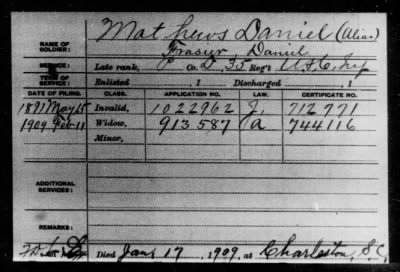 NAME OF SOLDIER: Mathews Daniel (Alias)
Frasier, Daniel
SERVICE: Late rank, P Co. D, 35 Reg't U.S.C. Inf
TERM OF SERVICE: Enlisted , 1 Discharged , 1
DATE OF FILING. CLASS. APPLICATION NO. LAW. CERTIFICATE NO.
1891 May 15 Invalid, 1022962 J. 712771
1909 Feb 11 Widow, 913587 a 744116
Minor,
ADDITIONAL SERVICES:
REMARKS:
Died Jan 17, 1909, at Charleston, S.C.